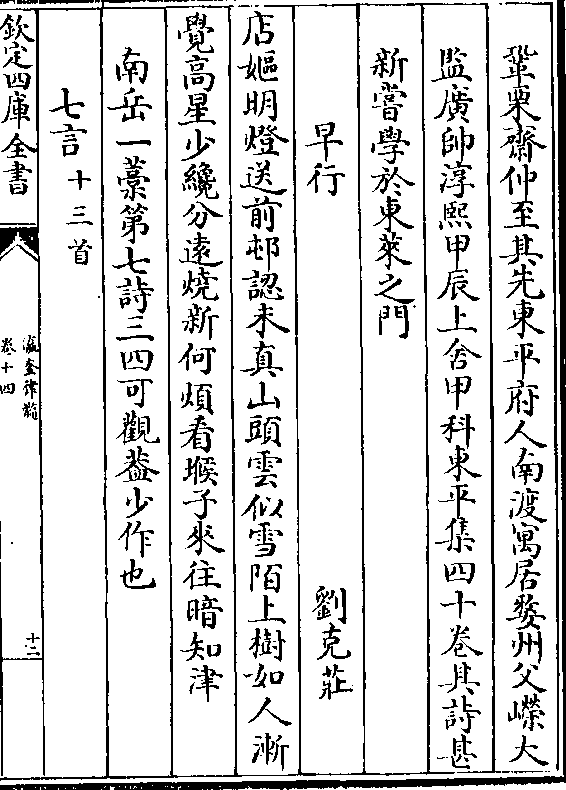 鞏栗齋仲至其先東平府人南渡寓居婺州父嶸大
監廣帥淳熙甲辰上舍甲科東平集四十卷其詩甚
新嘗學於東萊之門
早行 劉克莊
店嫗明燈送前邨認未真山頭雲似雪陌上樹如人漸
覺高星少纔分遠燒新何煩看堠子來往暗知津
南岳一藁第七詩三四可觀葢少作也
七言十三首
欽定四庫全書
瀛奎律髓
卷十四
十二